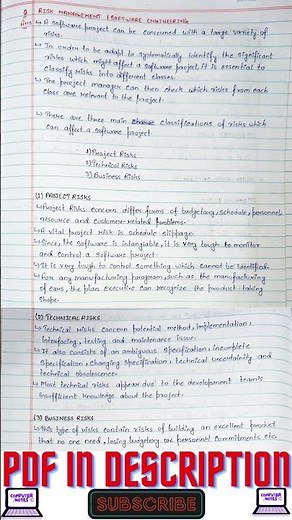 RISK MANAGEMENT | SOFTWARE ENGINEERING
A software project can be concerned with a large variety of
risks.
In order to be adept to systematically identify the significant
risks which might affect a software project, it is essential to
classify risks into different classes.
The project manager can then check which risks from each
class are relevant to the project.
There are three main classifications of risks which
can affect a software project:
1) Project Risks
2) Technical Risks
3) Business Risks
(1) PROJECT RISKS
Project Risks concern differ forms of budgetary, schedule, personnel,
resource and customer-related problems.
A vital project risk is schedule slippage.
Since, the software is intangible, it is very tough to monitor
and control a software project.
It is very tough to control something which cannot be identified.
For any manufacturing program, such as the manufacturing
of cars, the plan executive can recognize the product taking
shape.
(2) TECHNICAL RISKS
Technical risks concern potential method, implementation,
interfacing, testing and maintenance issue.
It also consists of an ambiguous specification, incomplete
specification, changing specification, technical uncertainty and
technical obsolescence.
Most technical risks appear due to the development team's
insufficient knowledge about the project.
(3) BUSINESS RISKS
This type of risks contain risks of building an excellent product
that no one need, losing budgetary or personnel commitments etc.
PDF IN DESCRIPTION
COMPUTER NOTES
SUBSCRIBE
COMPUTER NOTES